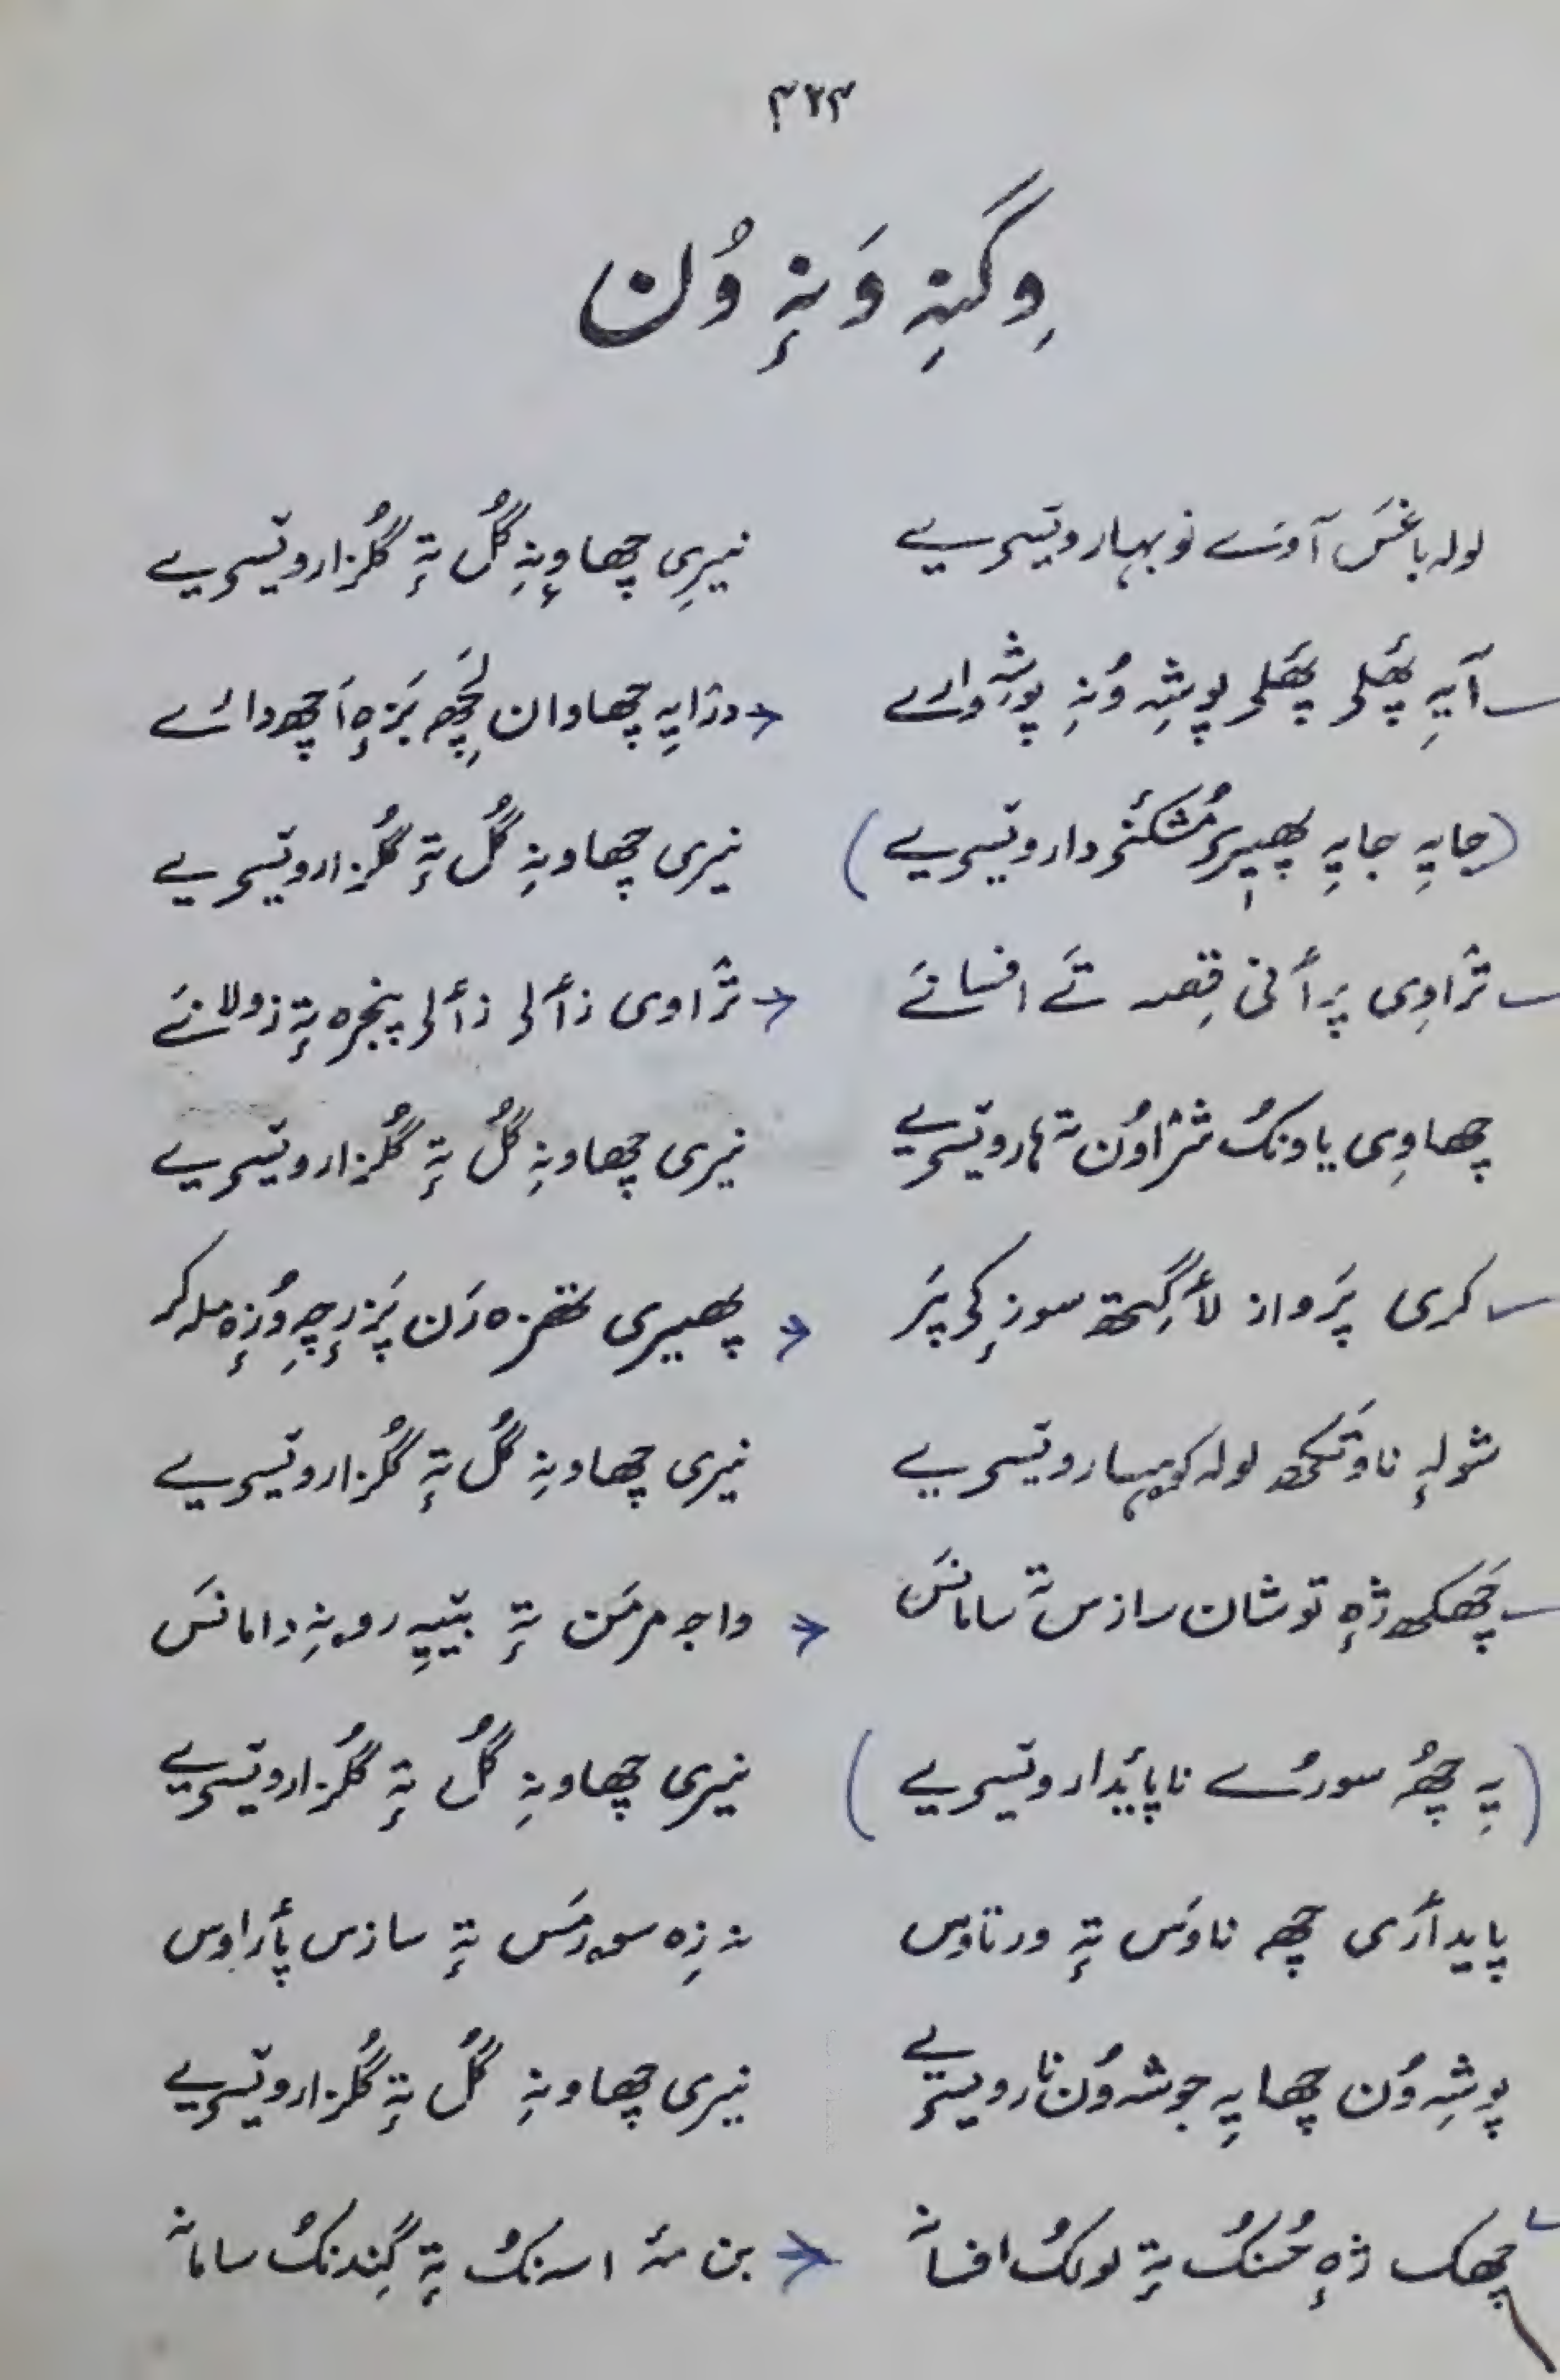 ۳۲۳
وِگنہِ وَنہٕ وُن
لولہ باغسَ آو نَے نوبہار ویٚسریے نیرِی چھاوِنہِ گُل تہٕ گُلزار ویٚسریے
آیہِ پھَلی پھَلی پوشہِ وُنہِ پوشہِ وارے درٛایہِ چھاوان لچھ بَزٕہ اَچھ دارے
(جایہِ جایہِ پھیرِ مُشکہٕ دار ویٚسریے) نیری چھاونہِ گُل تہٕ گُلزار ویٚسریے
ترٛاوِی پرٲنی قِصہ تَے افسانے ترٛاوی زٲلی زٲلی پنجرہ تہٕ زولانے
چھاوِی یاونکُ شرٛاوُن تہٕ ہار ویٚسریے نیری چھاونہِ گُل تہٕ گُلزار ویٚسریے
کری پَرواز لٲگِتھ سوزٕکی پَر پھیری
شولہٕ ناوتَکھ لولہ کوہسار ویٚسریے نیری چھاونہِ گُل تہٕ گُلزار ویٚسریے
چَھکھ ژٕہ توشان سازس تہٕ سامانَس واجہ تہٕ بیٚیہِ دامانَس
(یہِ چُھ سورُے ناپائیدار ویٚسریے) نیری چھاونہِ گُل تہٕ گُلزار ویٚسریے
پایدٲری چھ ناوَس تہٕ ورتاوس نہ زٕہ تہٕ سازس پٲراوس
پوشہِ وُن چھا یہِ جوشہ وُن نار ویٚسریے نیری چھاونہِ گُل تہٕ گُلزار ویٚسریے
چھکھ ژٕہ حُسنکُ تہٕ لولکُ افسانہ اسنکُ تہٕ گِندنکُ سامانہ